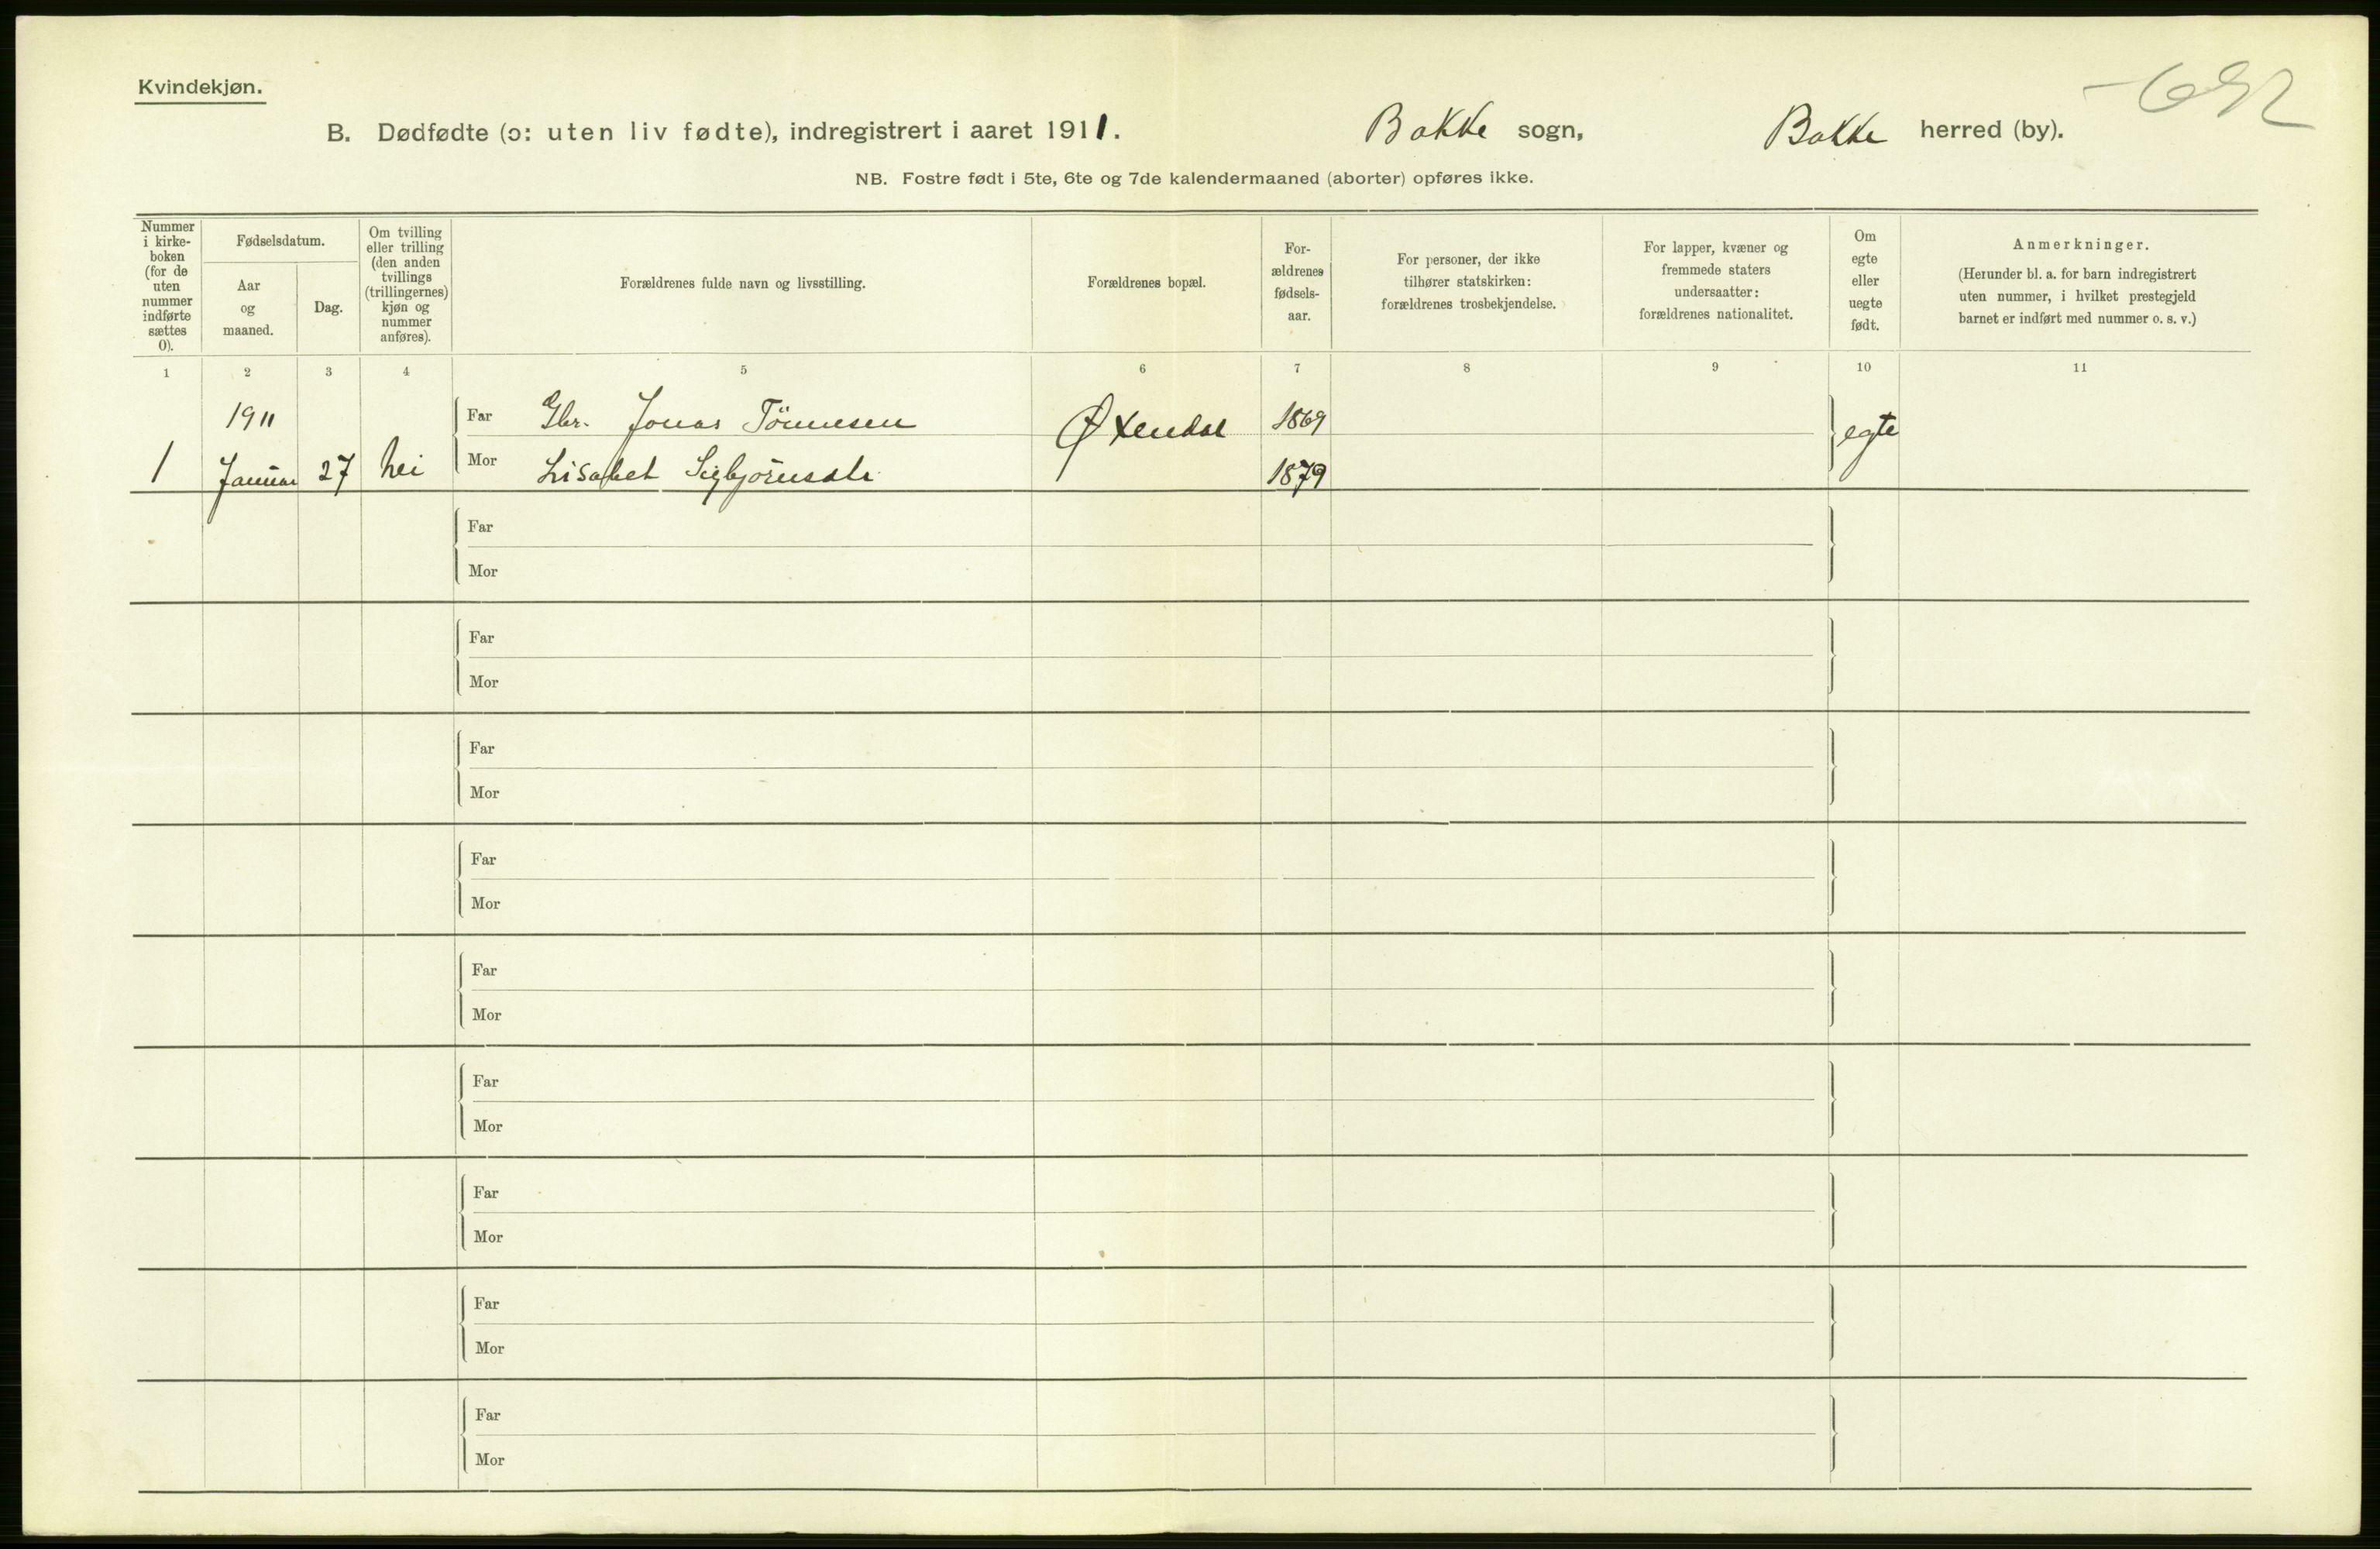 Kvindekjøn.
B. Dødfødte (ɔ: uten liv fødte), indregistrert i aaret 1911. Bakke sogn, Bakke herred (by).
NB. Fostre født i 5te, 6te og 7de kalendermaaned (aborter) opføres ikke.
Nummer i kirke-boken (for de uten nummer indførte sættes 0).
Fødselsdatum.
Aar og maaned.
Dag.
Om tvilling eller trilling (den anden tvillings (trillingernes) kjøn og nummer anføres).
Forældrenes fulde navn og livsstilling.
Forældrenes bopæl.
For-ældrenes fødsels-aar.
For personer, der ikke tilhører statskirken: forældrenes trosbekjendelse.
For lapper, kvæner og fremmede staters undersaatter: forældrenes nationalitet.
Om egte eller uegte født.
Anmerkninger.
(Herunder bl. a. for barn indregistrert uten nummer, i hvilket prestegjeld barnet er indført med nummer o. s. v.)
1 2 3 4 5 6 7 8 9 10 11
1911 Far Gbr. Jonas Tönnesen Øxendal 1869 egte
1 Januar 27 nei Mor Lisabet Sigbjörnsdtr 1879
Far
Mor
Far
Mor
Far
Mor
Far
Mor
Far
Mor
Far
Mor
Far
Mor
Far
Mor
Far
Mor